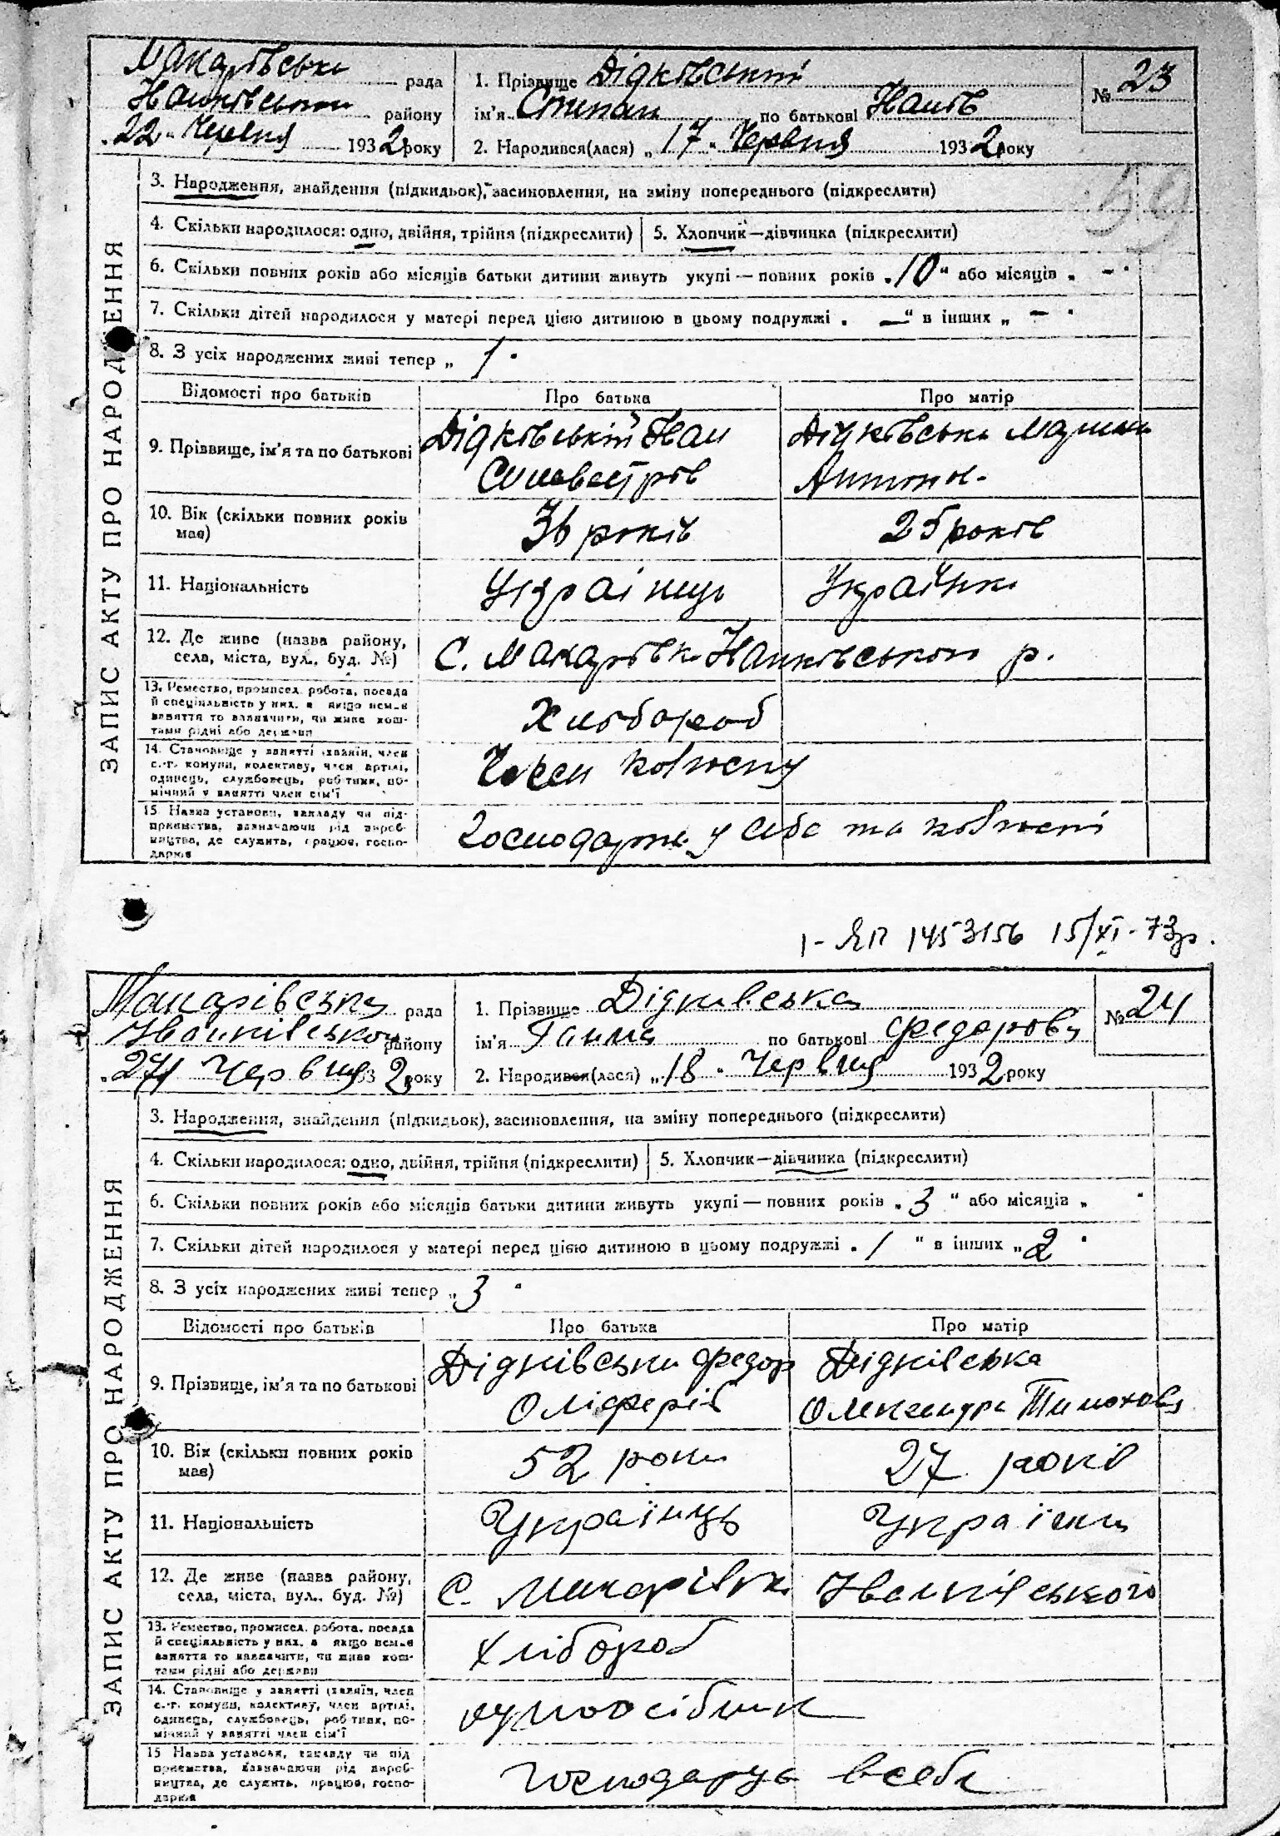 Макарівська рада
Іванківського району
22 Червня 1932 року
1. Прізвище Дідківський
ім'я Степан по батькові Іванів
2. Народився(лася) „17" Червня 1932 року
№ 23
59
ЗАПИС АКТУ ПРО НАРОДЖЕННЯ
3. Народження, знайдення (підкидьок), засиновлення, на зміну попереднього (підкреслити)
4. Скільки народилося: одно, двійня, трійня (підкреслити) 5. Хлопчик—дівчинка (підкреслити)
6. Скільки повних років або місяців батьки дитини живуть укупі — повних років „10" або місяців „ — "
7. Скільки дітей народилося у матері перед цією дитиною в цьому подружжі „ — " в інших „ — "
8. З усіх народжених живі тепер „ 1 "
Відомості про батьків Про батька Про матір
9. Прізвище, ім'я та по батькові
Дідківський Іван Дідківська
Сильвестрів Антонів.
10. Вік (скільки повних років має) 36 років 25 років
11. Національність Українець Українка
12. Де живе (назва району, села, міста, вул., буд. №) С. Макарівка Іванківського р.
13. Ремество, промисел, робота, посада й спеціяльність у них, а якщо немає заняття то зазначити, чи живе коштами рідні або держави
Хлібороб
14. Становище у занятті (хазяїн, член с.-г. комуни, колективу, член артілі, одинець, службовець, робітник, помічний у занятті член сім'ї
Член колгоспу
15 Назва установи, закладу чи підприємства, зазначаючи рід виробництва, де служить, працює, господарює
Господарює у себе та колгоспі
1-ЯП 1453156 15/XI-73р.
Макарівська рада
Іванківського району
24 Червня 1932 року
1. Прізвище Дідківська
ім'я Ганна по батькові Федорова
2. Народився(лася) „18" Червня 1932 року
№ 24
ЗАПИС АКТУ ПРО НАРОДЖЕННЯ
3. Народження, знайдення (підкидьок), засиновлення, на зміну попереднього (підкреслити)
4. Скільки народилося: одно, двійня, трійня (підкреслити) 5. Хлопчик—дівчинка (підкреслити)
6. Скільки повних років або місяців батьки дитини живуть укупі — повних років „3" або місяців „ "
7. Скільки дітей народилося у матері перед цією дитиною в цьому подружжі „1" в інших „2"
8. З усіх народжених живі тепер „3"
Відомості про батьків Про батька Про матір
9. Прізвище, ім'я та по батькові
Дідківський Федор Дідківська
Оліферів Олександра Тимохова
10. Вік (скільки повних років має) 52 роки 27 років
11. Національність Українець Українка
12. Де живе (назва району, села, міста, вул., буд. №) С. Макарівка Іванківського
13. Ремество, промисел, робота, посада й спеціяльність у них, а якщо немає заняття то зазначити, чи живе коштами рідні або держави
Хлібороб
14. Становище у занятті (хазяїн, член с.-г. комуни, колективу, член артілі, одинець, службовець, робітник, помічний у занятті член сім'ї
одноосібник
15 Назва установи, закладу чи підприємства, зазначаючи рід виробництва, де служить, працює, господарює
Господарує в себе